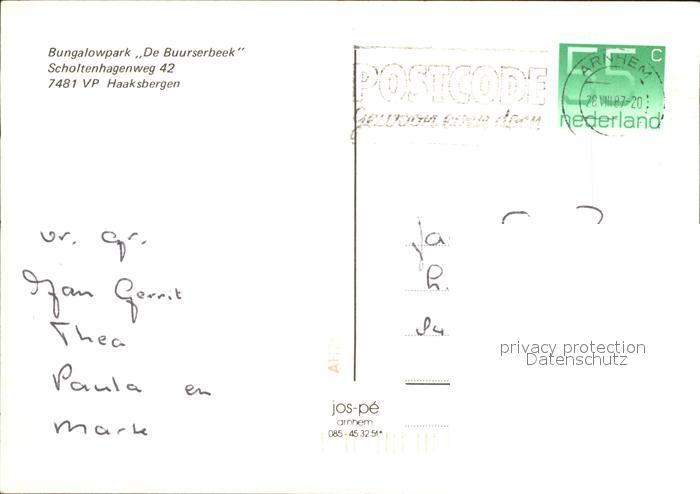 Bungalowpark „De Buurserbeek"
Scholtenhagenweg 42
7481 VP Haaksbergen
POSTCODE
ARNHEM
28.VIII.87-20
55 c
nederland
vr. gr.
Jan Gerrit
Thea
Paula en
Mark
Ja
h.
privacy protection
Datenschutz
jos-pé
arnhem
085-45 32 51*